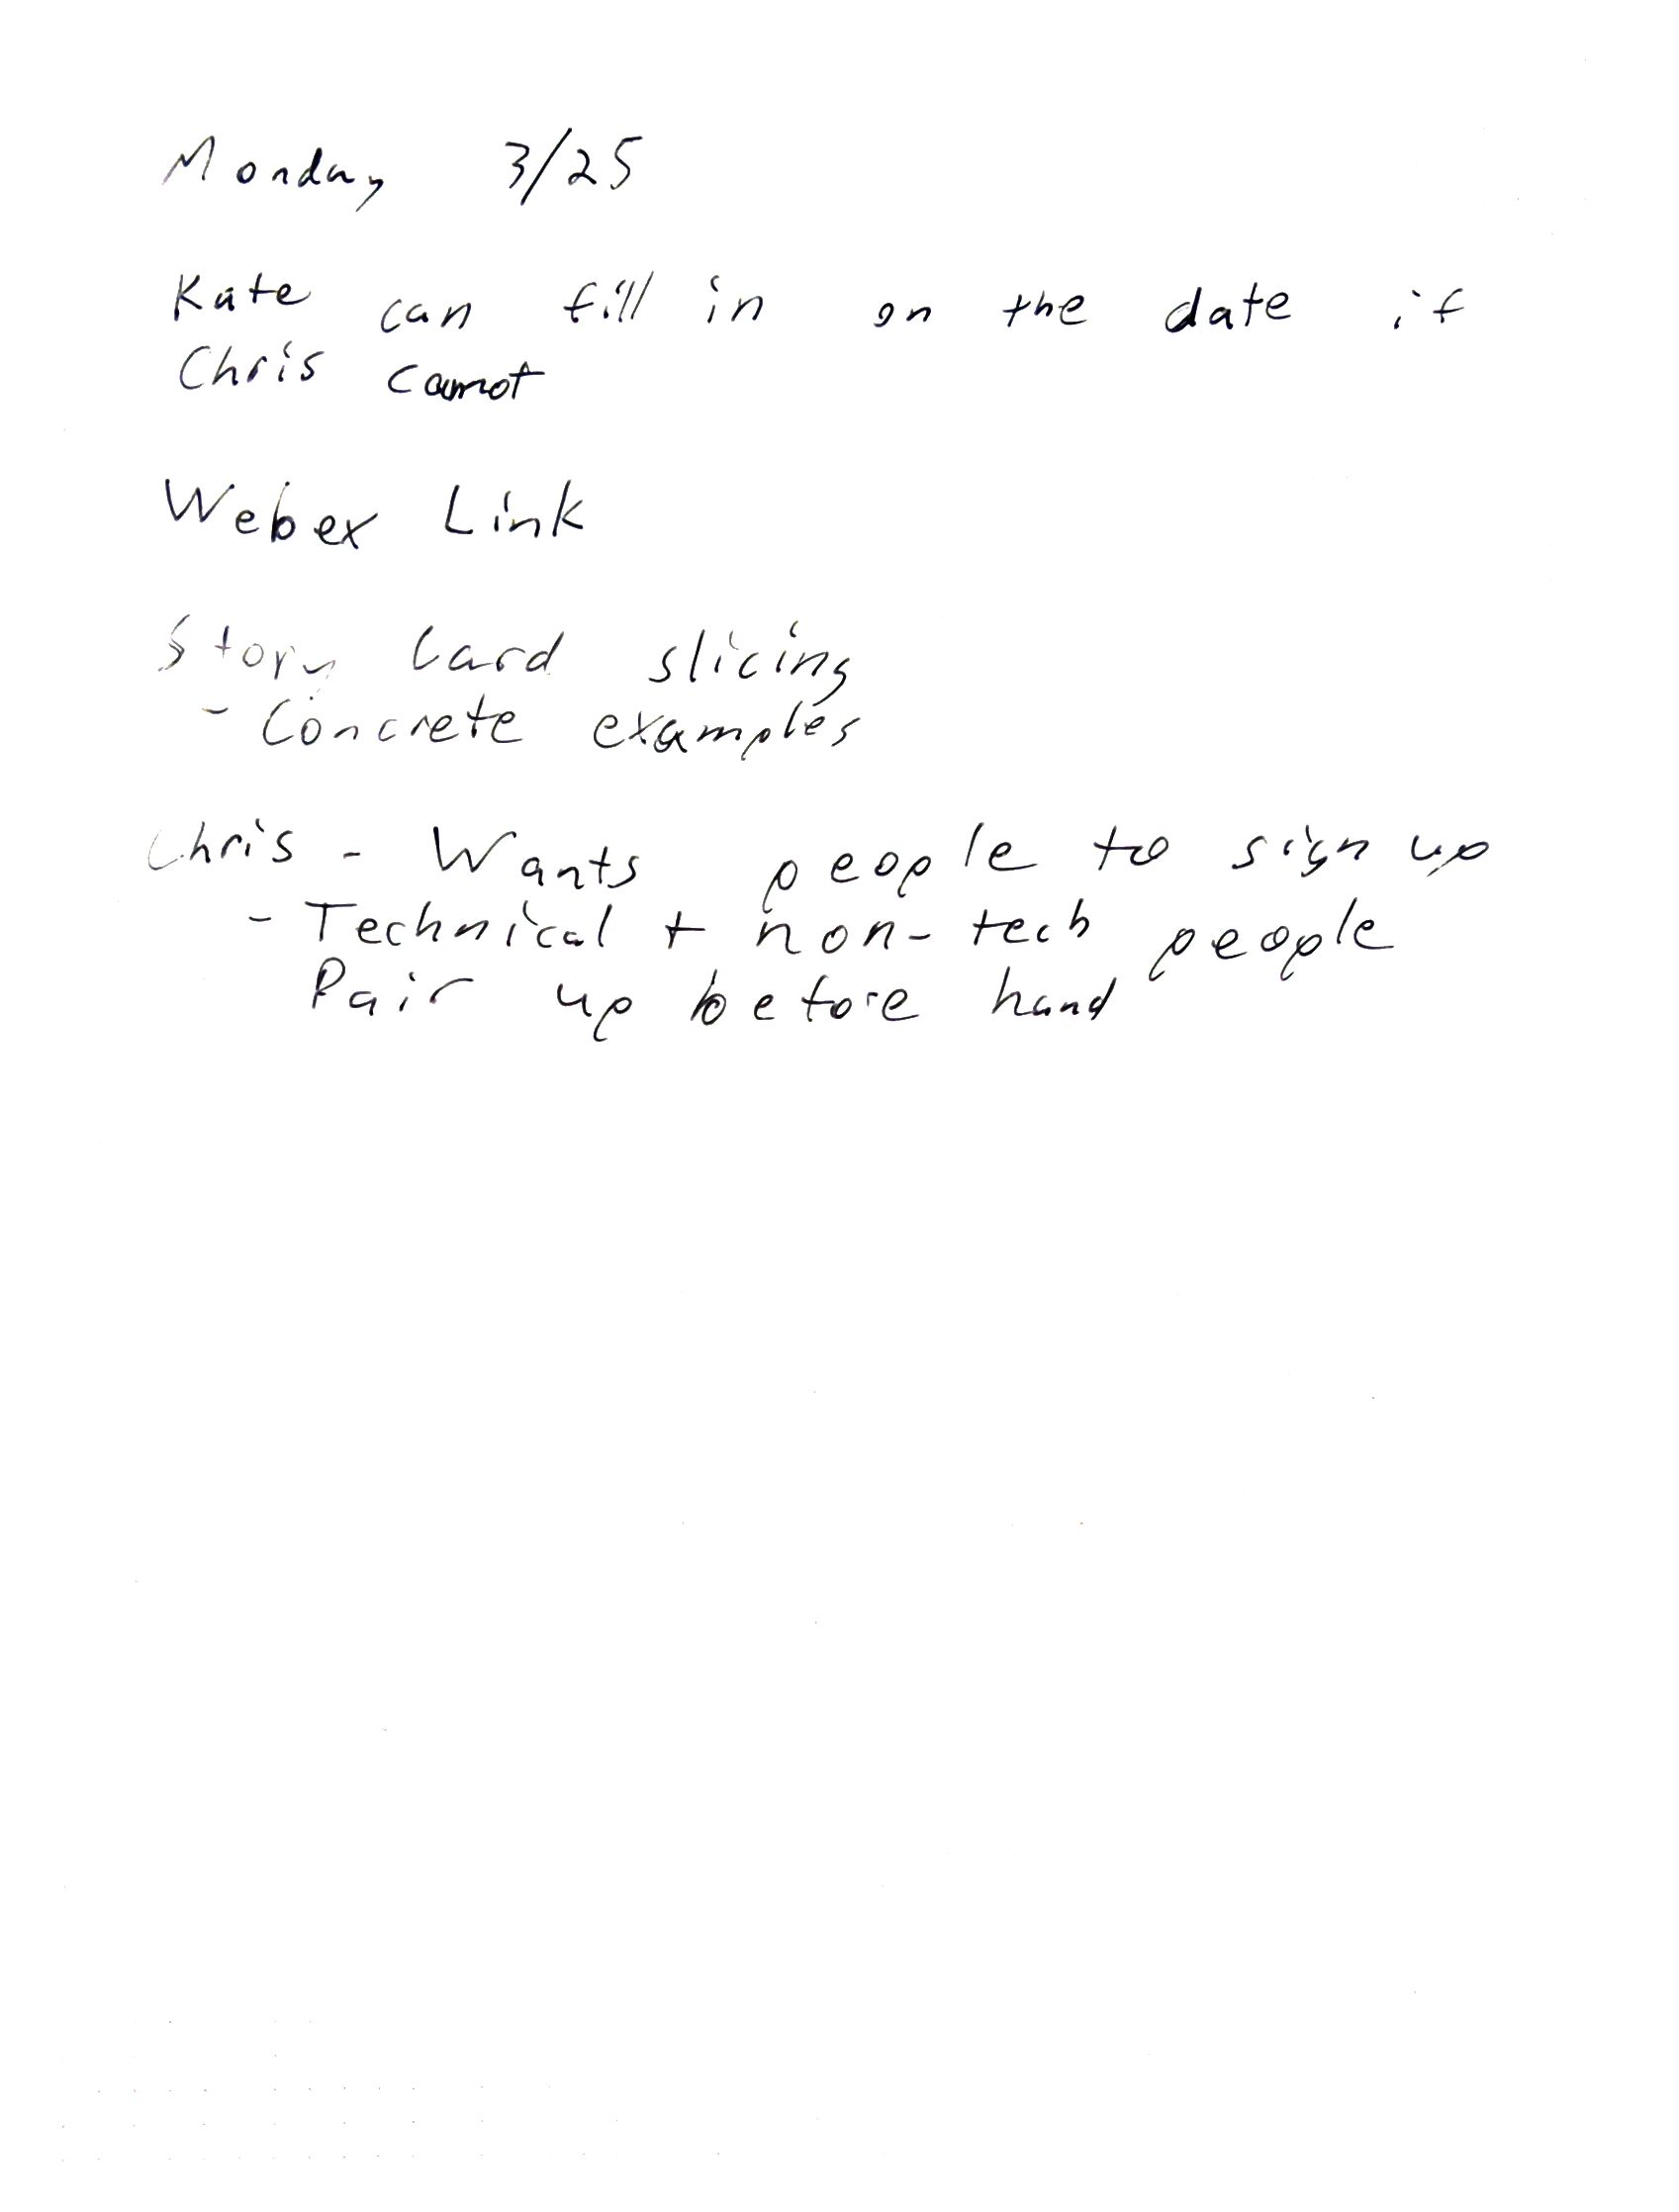 Monday 3/25
Kate can fill in on the date if
Chris cannot
Webex Link
Story Card slicing
- Concrete examples
Chris - Wants people to sign up
- Technical + non-tech people
Pair up before hand